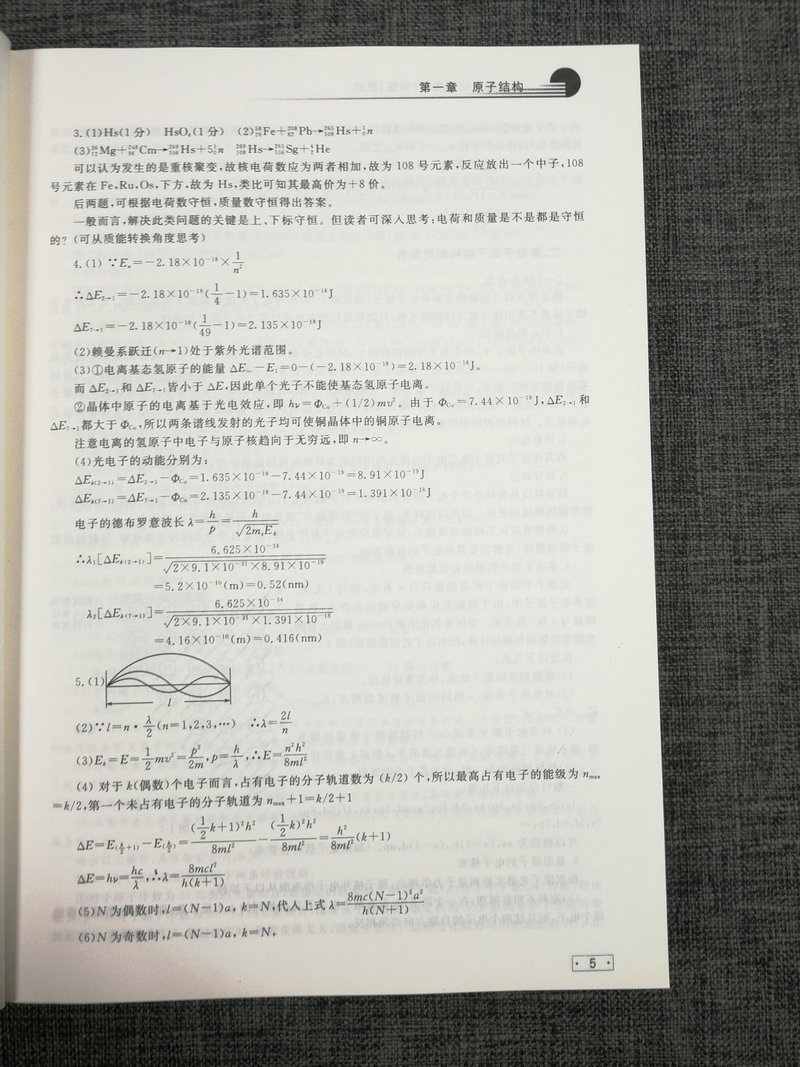 第一章 原子结构
3.(1)Hs(1分) HsO₄(1分) (2)⁵⁸₂₆Fe+²⁰⁸₈₂Pb→²⁶⁵₁₀₈Hs+¹₀n
(3)²⁶₁₂Mg+²⁴⁸₉₆Cm→²⁶⁹₁₀₈Hs+5¹₀n ²⁶⁹₁₀₈Hs→²⁶⁵₁₀₆Sg+⁴₂He
可以认为发生的是重核聚变,故核电荷数应为两者相加,故为 108 号元素,反应放出一个中子,108
号元素在 Fe,Ru,Os,下方,故为 Hs,类比可知其最高价为+8 价。
后两题,可根据电荷数守恒,质量数守恒得出答案。
一般而言,解决此类问题的关键是上、下标守恒。但读者可深入思考:电荷和质量是不是都是守恒
的?(可从质能转换角度思考)
4.(1) ∵Eₙ=−2.18×10⁻¹⁸×1/n²
∴ΔE₂→₁=−2.18×10⁻¹⁸(1/4−1)=1.635×10⁻¹⁸J
ΔE₇→₁=−2.18×10⁻¹⁸(1/49−1)=2.135×10⁻¹⁸J
(2)赖曼系跃迁(n→1)处于紫外光谱范围。
(3)①电离基态氢原子的能量 ΔE∞−E₁=0−(−2.18×10⁻¹⁸)=2.18×10⁻¹⁸J。
而 ΔE₂→₁和 ΔE₇→₁皆小于 ΔE,因此单个光子不能使基态氢原子电离。
②晶体中原子的电离基于光电效应,即 hν=Φ_Cu+(1/2)mv²。由于 Φ_Cu=7.44×10⁻¹⁹J,ΔE₂→₁和
ΔE₇→₁都大于 Φ_Cu,所以两条谱线发射的光子均可使铜晶体中的铜原子电离。
注意电离的氢原子中电子与原子核趋向于无穷远,即 n→∞。
(4)光电子的动能分别为:
ΔE_k(2→1)=ΔE₂→₁−Φ_Cu=1.635×10⁻¹⁸−7.44×10⁻¹⁹=8.91×10⁻¹⁹J
ΔE_k(7→1)=ΔE₇→₁−Φ_Cu=2.135×10⁻¹⁸−7.44×10⁻¹⁹=1.391×10⁻¹⁸J
电子的德布罗意波长 λ=h/p=h/√(2mₑE_k)
∴λ₁[ΔE_k(2→1)]=6.625×10⁻³⁴/√(2×9.1×10⁻³¹×8.91×10⁻¹⁹)
=5.2×10⁻¹⁰(m)=0.52(nm)
λ₂[ΔE_k(7→1)]=6.625×10⁻³⁴/√(2×9.1×10⁻³¹×1.391×10⁻¹⁸)
=4.16×10⁻¹⁰(m)=0.416(nm)
5.(1)
l
(2)∵l=n·λ/2(n=1,2,3,…) ∴λ=2l/n
(3)E_k=E=1/2mv²=p²/2m,p=h/λ,∴E=n²h²/8ml²
(4) 对于 k(偶数)个电子而言,占有电子的分子轨道数为 (k/2) 个,所以最高占有电子的能级为 n_max
=k/2,第一个未占有电子的分子轨道为 n_max+1=k/2+1
ΔE=E_(k/2+1)−E_(k/2)=(1/2k+1)²h²/8ml²−(1/2k)²h²/8ml²=h²/8ml²(k+1)
ΔE=hν=hc/λ,∴λ=8mcl²/h(k+1)
(5)N 为偶数时,l=(N−1)a, k=N,代入上式 λ=8mc(N−1)²a²/h(N+1)
(6)N 为奇数时,l=(N−1)a, k=N,
· 5 ·